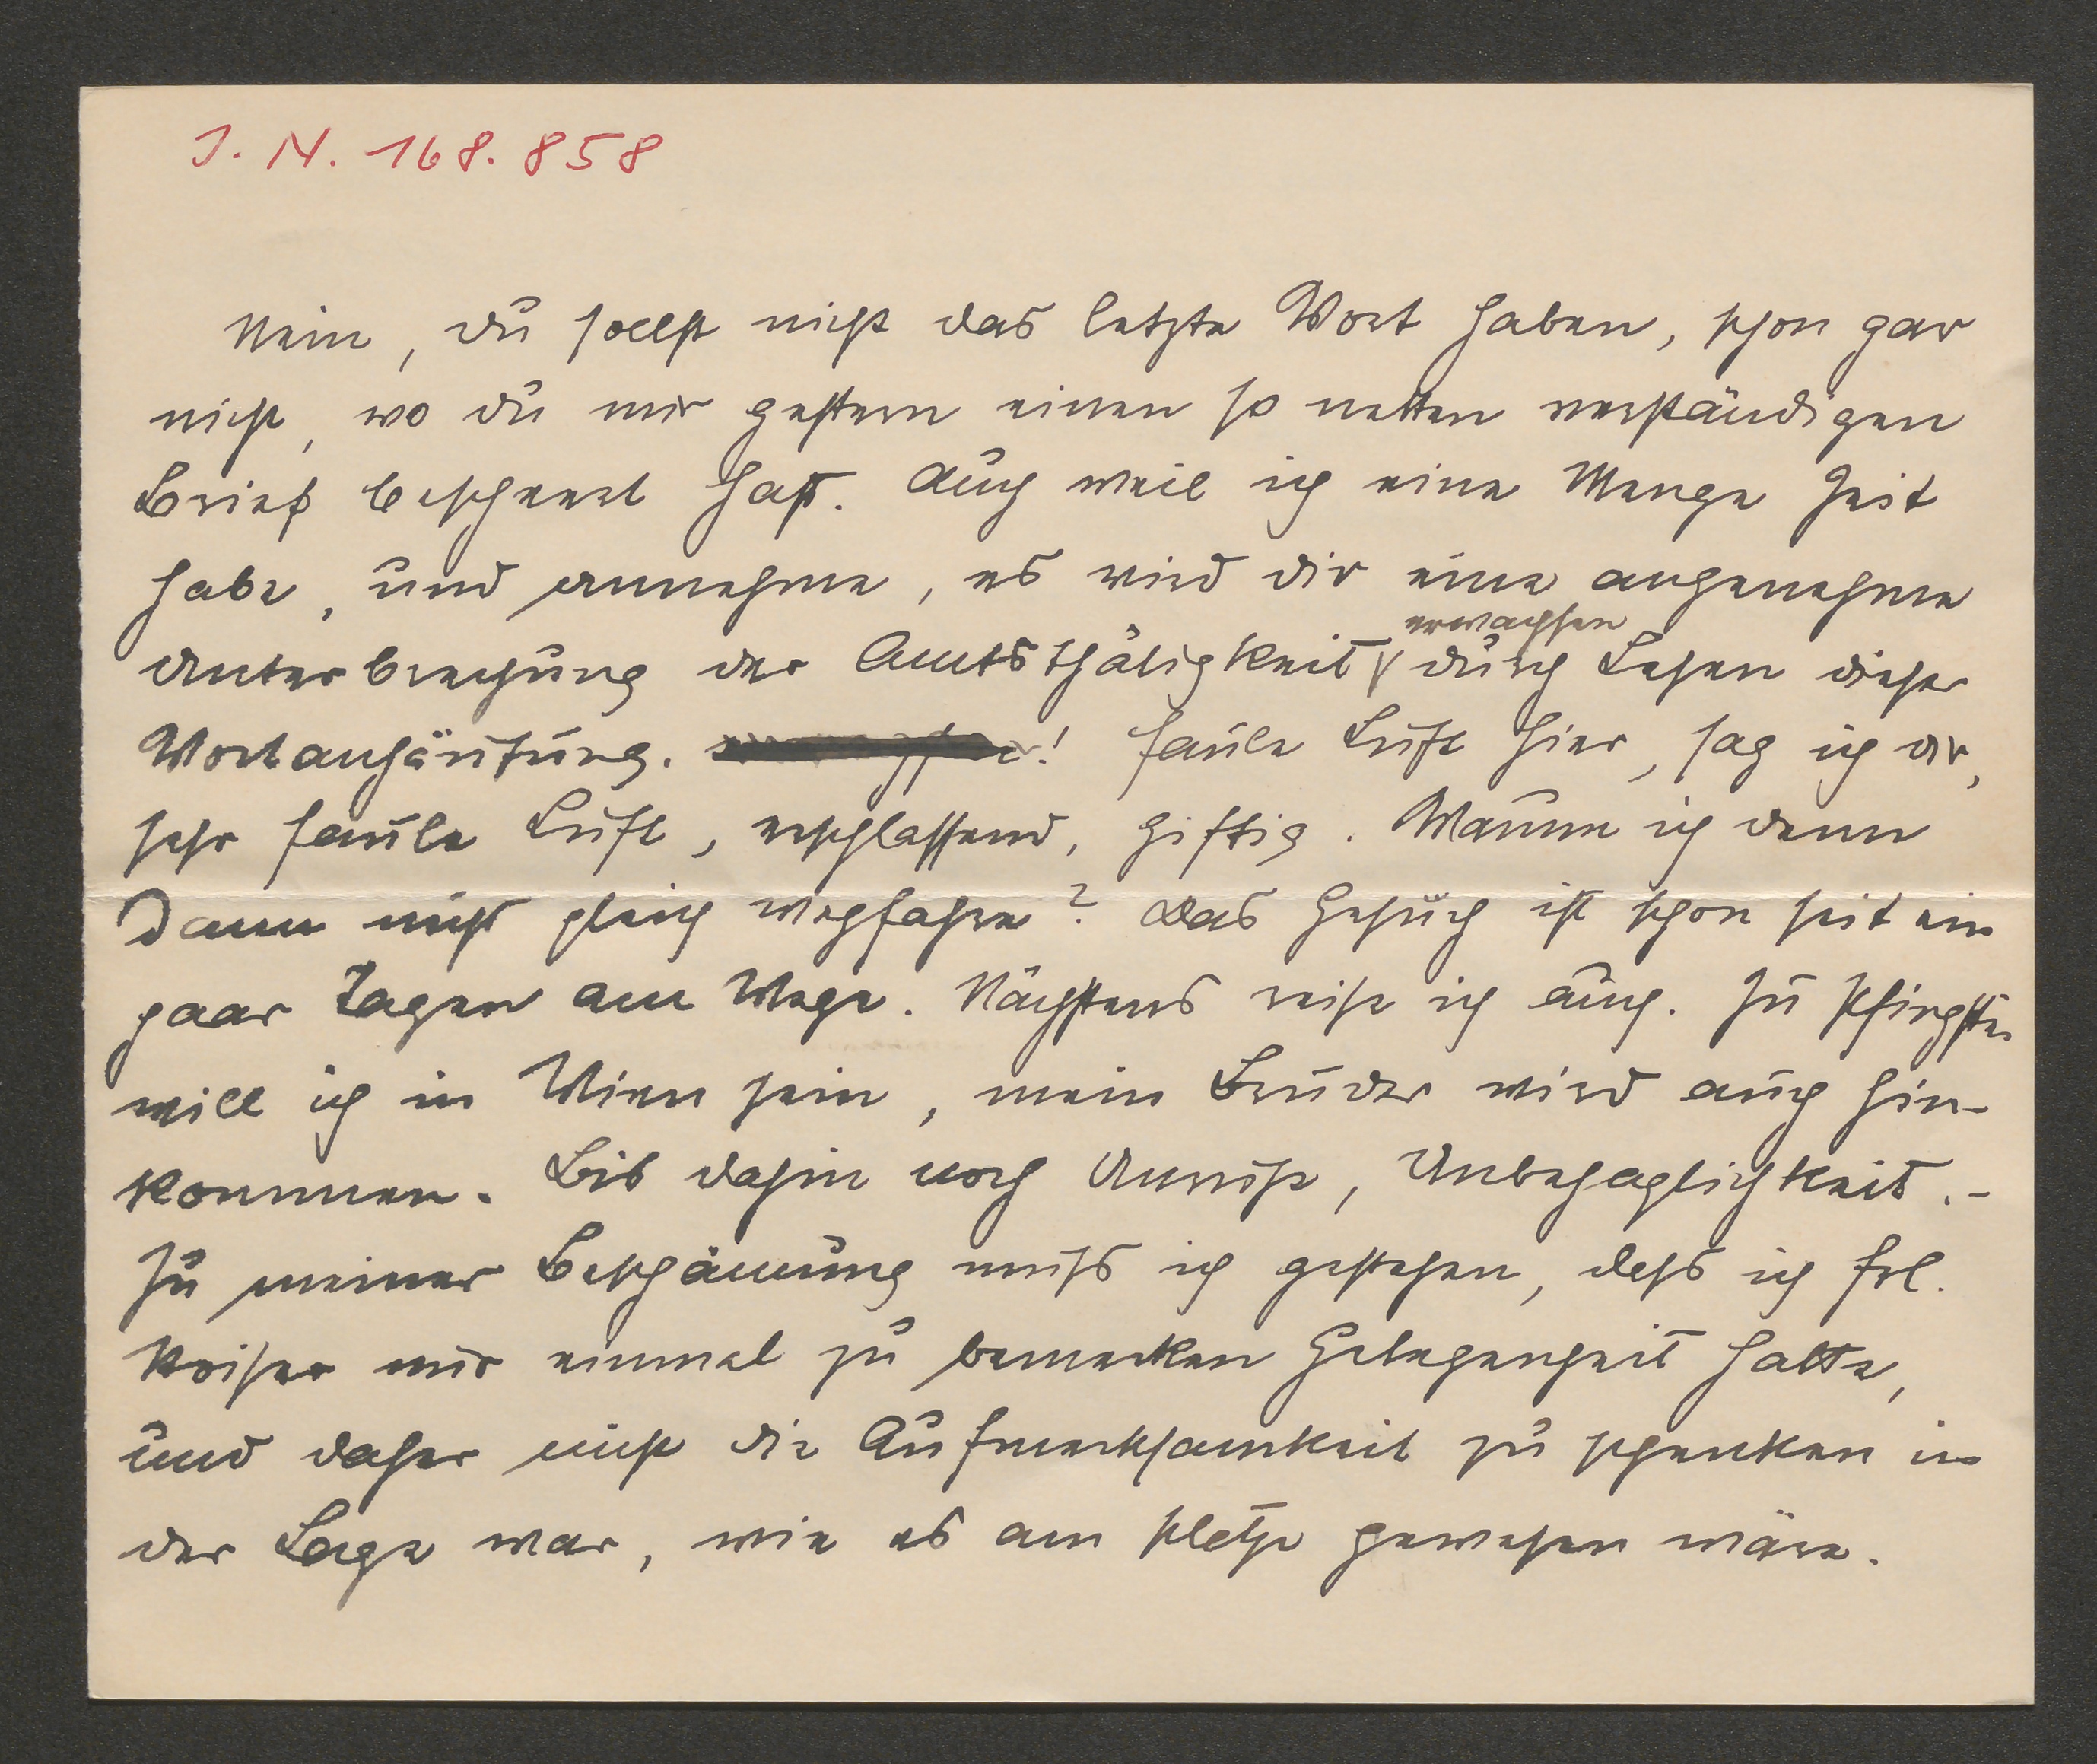 J. N. 168.858
Nein, du sollst nicht das letzte Wort haben, schon gar
nicht, wo du mir gestern einen so netten verständigen
Brief bescheert hast. Auch weil ich eine Menge Zeit
habe, und annehme, es wird dir eine angenehme
erwachsen
Unterbrechung der Amtsthätigkeit durch Lesen dieser
Wortanhäufung. ! Faule Luft hier, sag ich dir,
sehr faule Luft, erschlaffend, giftig. Warum ich denn
dann nicht gleich wegfahre? Das Gesuch ist schon seit ein
paar Tagen am Wege. Nächstens reise ich auch. Zu Pfingsten
will ich in Wien sein, mein Bruder wird auch hin-
kommen. Bis dahin noch Unruhe, Unbehaglichkeit. -
Zu meiner Beschämung muß ich gestehen, daß ich Frl.
nur einmal zu bemerken Gelegenheit hatte,
und daher nicht die Aufmerksamkeit zu schenken in
der Lage war, wie es am Platze gewesen wäre.